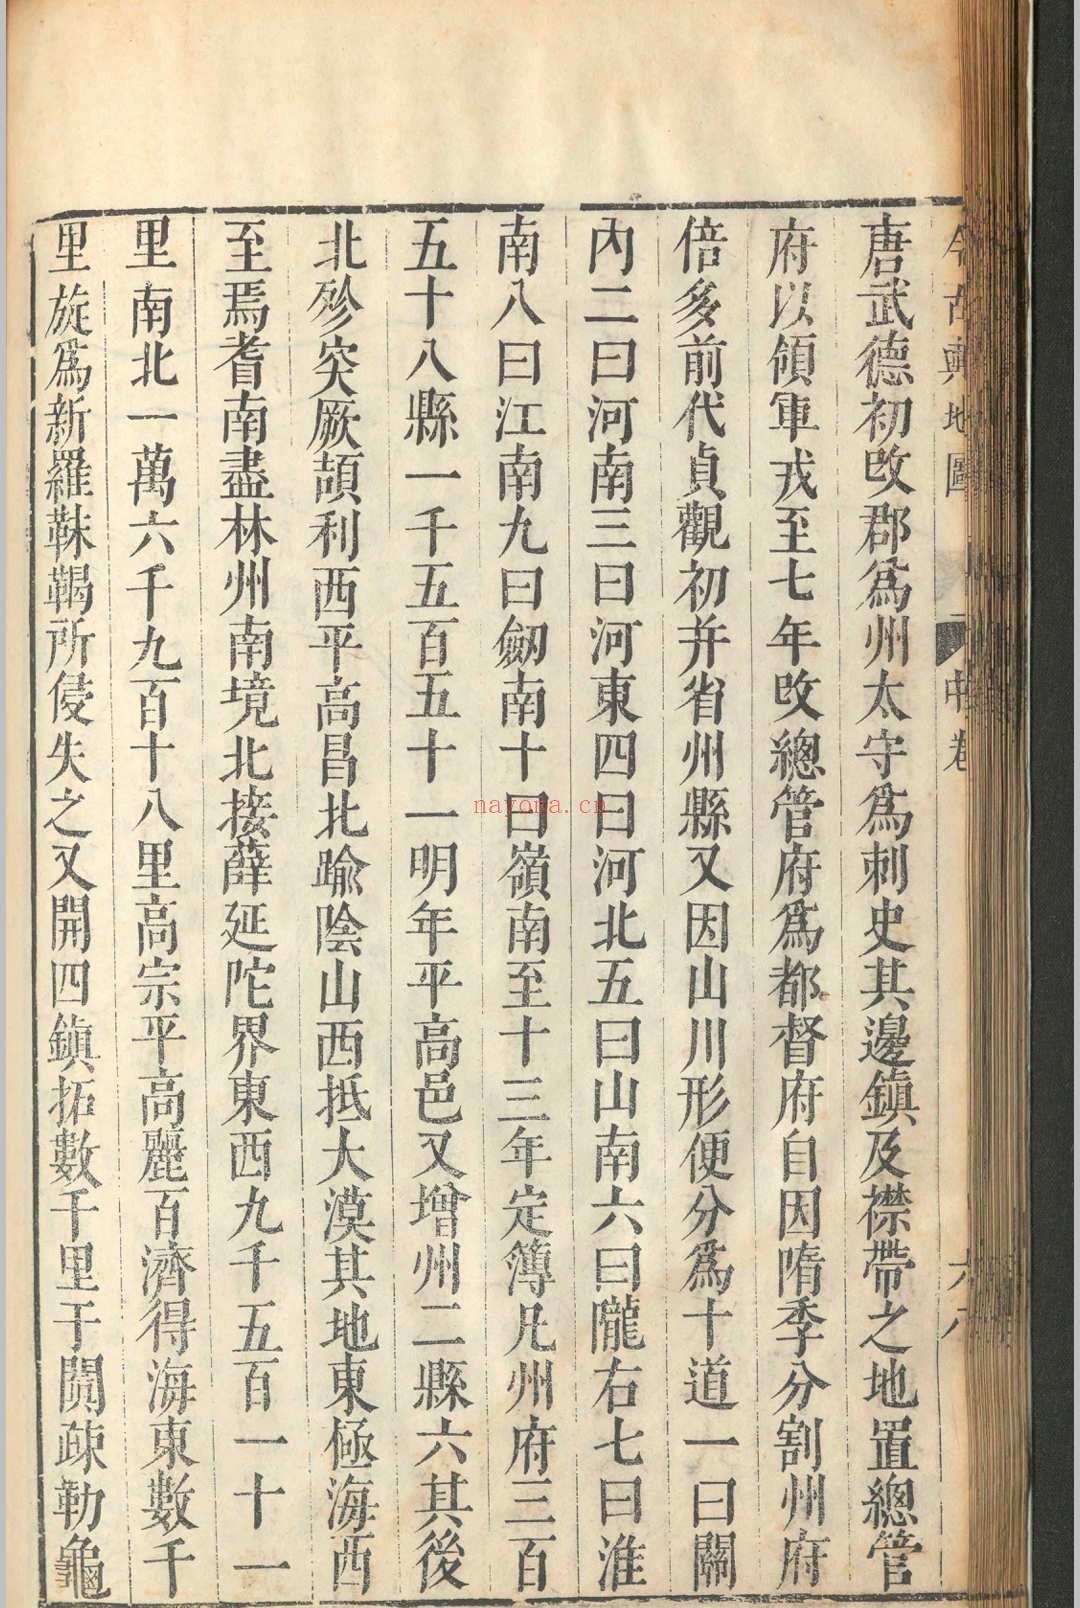 今古輿地圖 中卷 六八
唐武德初改郡爲州太守爲刺史其邊鎮及襟帶之地置總管
府以領軍戎至七年改總管府爲都督府自因隋季分割州府
倍多前代貞觀初并省州縣又因山川形便分爲十道一曰關
內二曰河南三曰河東四曰河北五曰山南六曰隴右七曰淮
南八曰江南九曰劒南十曰嶺南至十三年定簿凡州府三百
五十八縣一千五百五十一明年平高邑又增州二縣六其後
北殄突厥頡利西平高昌北踰陰山西抵大漠其地東極海西
至焉耆南盡林州南境北接薛延陀界東西九千五百一十一
里南北一萬六千九百十八里高宗平高麗百濟得海東數千
里旋爲新羅靺鞨所侵失之又開四鎮拓數千里于闐疎勒龜
nayona.cn